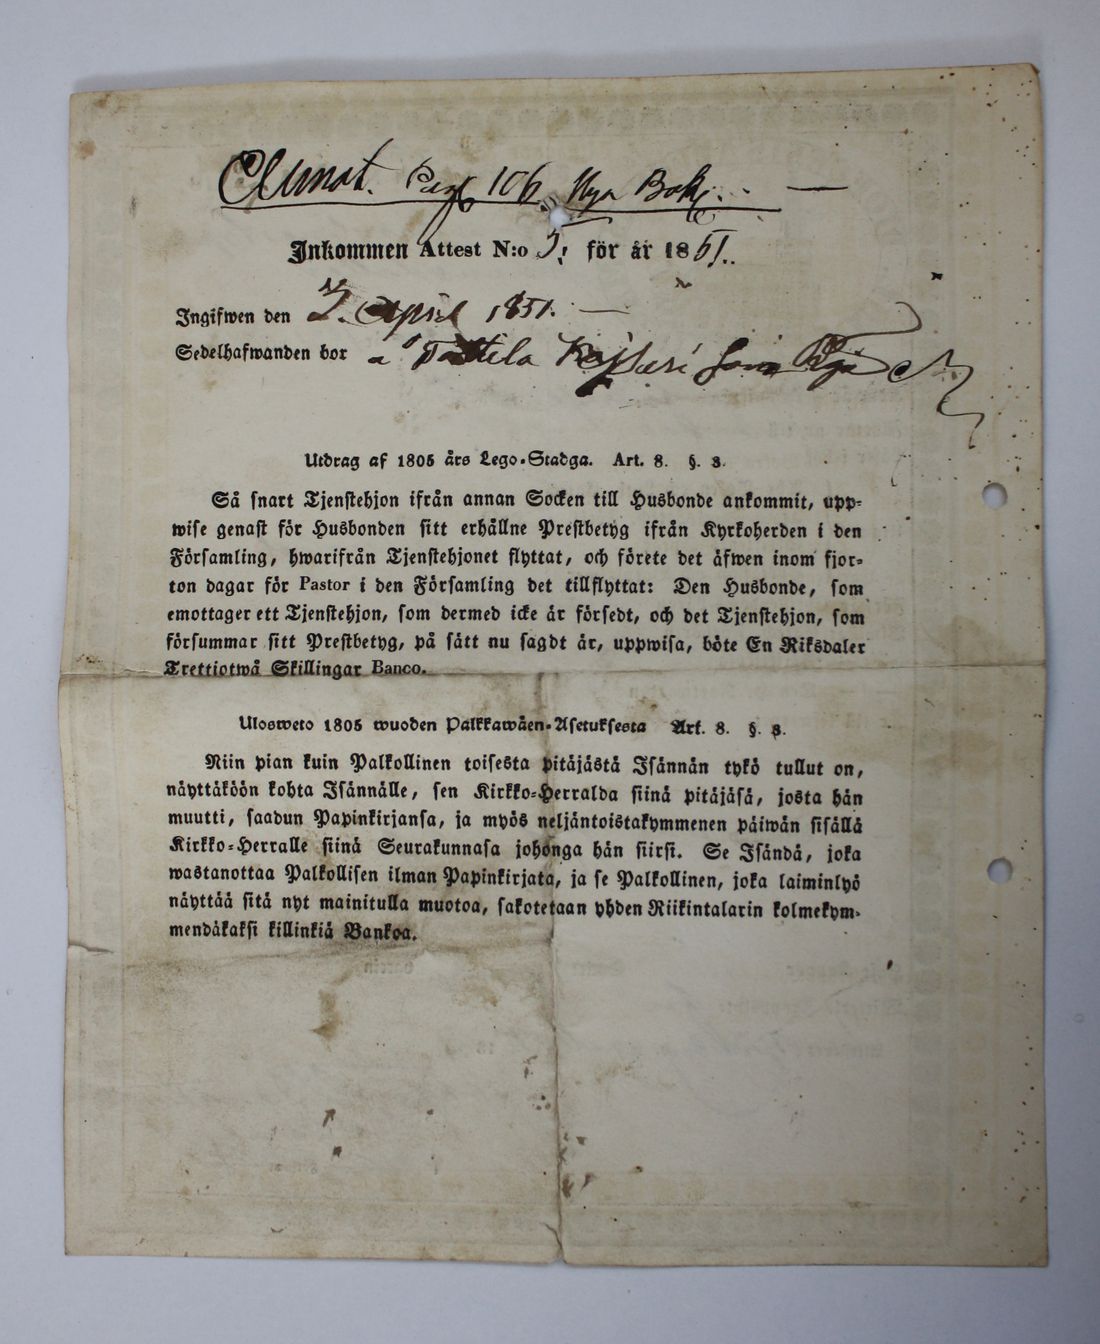 Pag 106 Nya Bok.
Inkommen Attest N:o 5. för år 1851.
Ingifwen den 7. April 1851.
Sedelhafwanden bor å
Utdrag af 1805 års Lego-Stadga. Art. 8. §. 3.
Så snart Tjenstehjon ifrån annan Socken till Husbonde ankommit, upp-
wise genast för Husbonden sitt erhållne Prestbetyg ifrån Kyrkoherden i den
Församling, hwarifrån Tjenstehjonet flyttat, och förete det äfwen inom fjor-
ton dagar för Pastor i den Församling det tillflyttat: Den Husbonde, som
emottager ett Tjenstehjon, som dermed icke är försedt, och det Tjenstehjon, som
försummar sitt Prestbetyg, på sätt nu sagdt är, uppwisa, böte En Riksdaler
Trettiotwå Skillingar Banco.
Ulosweto 1805 wuoden Palkkawäen-Asetuksesta Art. 8. §. 3.
Niin pian kuin Palkollinen toisesta pitäjästä Isännän tykö tullut on,
näyttäköön kohta Isännälle, sen Kirkko-Herralda siinä pitäjäsä, josta hän
muutti, saadun Papinkirjansa, ja myös neljäntoistakymmenen päiwän sisällä
Kirkko-Herralle siinä Seurakunnasa johonga hän siirsi. Se Isändä, joka
wastanottaa Palkollisen ilman Papinkirjata, ja se Palkollinen, joka laiminlyö
näyttää sitä nyt mainitulla muotoa, sakotetaan yhden Riikintalarin kolmekym-
mendäkaksi killinkiä Bankoa.